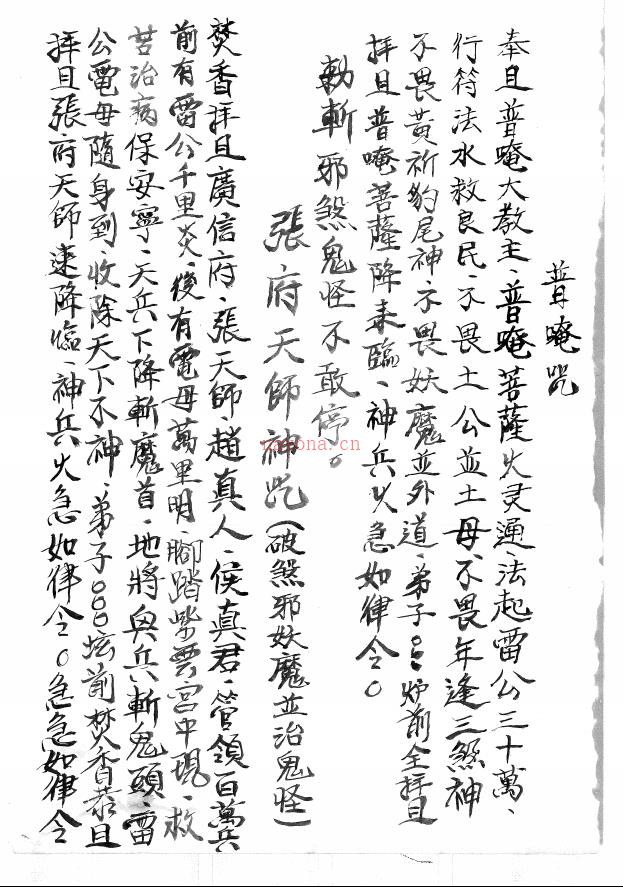 普唵咒
奉且普唵大教主、普唵菩薩火灵通、法起雷公三十萬、
行符法水救良民、不畏土公並土母、不畏年逢三煞神
不畏黃祈豹尾神、不畏妖魔並外道、弟子○○○炉前全拜且
拜且普唵菩薩降來臨、神兵火急如律令○
勅斬邪煞鬼怪不敢停。
張府天師神咒（破煞邪妖魔並治鬼怪）
焚香拜且廣信府、張天師趙真人、侯真君、管領百萬兵
前有雷公千里炎、後有電母萬里明、腳踏紫雲宮中現、救
苦治病保安寧、天兵下降斬魔首、地將與兵斬鬼頭、雷
公電母隨身到、收除天下不神、弟子○○○坛前焚香恭且
拜且張府天師速降臨、神兵火急如律令○急急如律令
nayona.cn